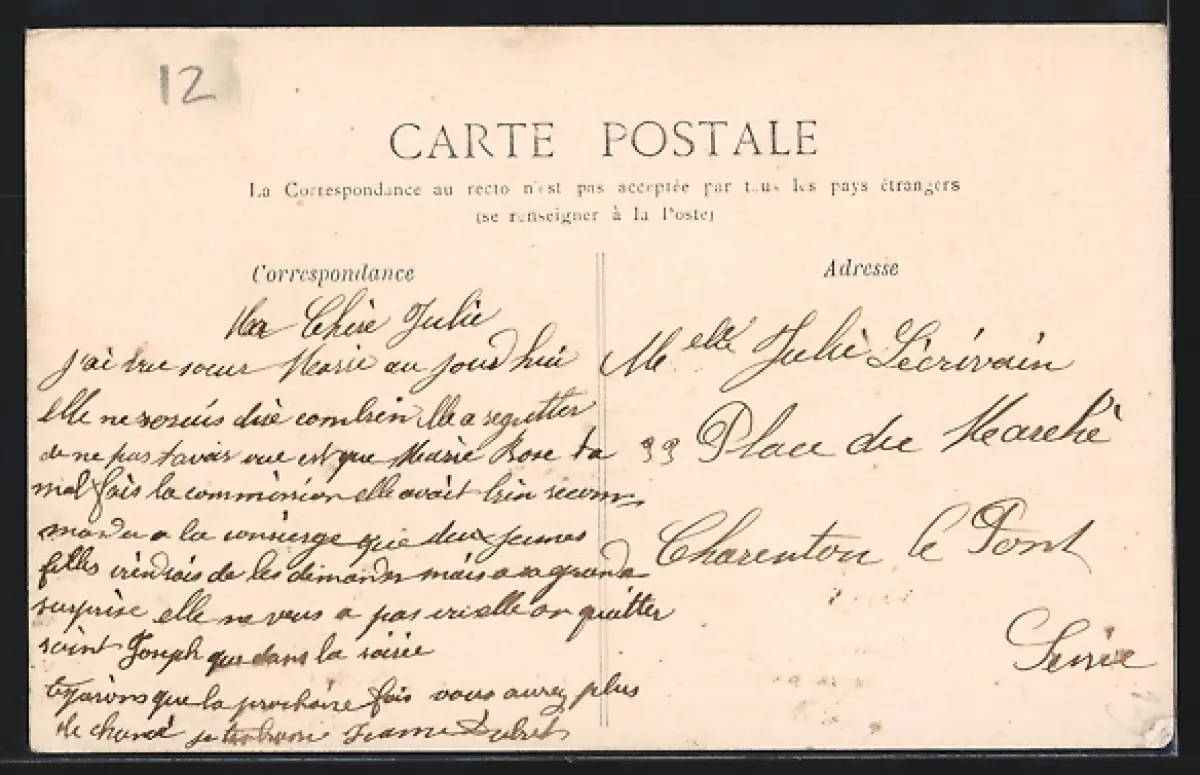 12
CARTE POSTALE
La Correspondance au recto n'est pas acceptée par tous les pays étrangers
(se renseigner à la Poste)
Correspondance
Adresse
Ma Chère Julie
j'ai vue sœur Marie au jourd'huie
elle ne dire combien elle a regretter
de ne pas tavoir vue est que Marie Rose ta
mal fais la commission elle avait bien recom
mander a la consierge que deux jeunes
filles de les demander mais a sa grande
surprise elle ne vous a pas elle on quitter
saint Joseph que dans la soirée
que la prochaine fois vous aurez plus
de chance je Jeanne
Melle Julie Lécrivain
33 Place du Marché
Charenton le Pont
Seine